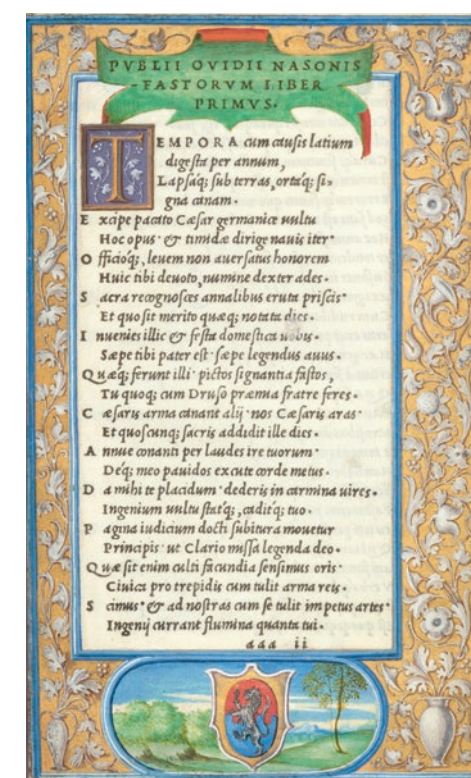 PVBLII OVIDII NASONIS
FASTORVM LIBER
PRIMVS.
TEMPORA cum causis latium
digesta per annum,
Lapsáq; sub terras, ortáq; si-
gna canam.
E xcipe pacato Cæsar germanice uultu
Hoc opus· & timidæ dirige nauis iter·
O fficioq;, leuem non auersatus honorem
Huic tibi deuoto, numine dexter ades.
S acra recognosces annalibus eruta priscis·
Et quo sit merito quæq; notata dies.
I nuenies illic & festa domestica uobis.
Sæpe tibi pater est· sæpe legendus auus.
Q uæq; ferunt illi· pictos signantia fastos,
Tu quoq; cum Druso præmia fratre feres.
C æsaris arma canant alij· nos Cæsaris aras·
Et quoscunq; sacris addidit ille dies.
A nnue conanti per laudes ire tuorum·
Déq; meo pauidos excute corde metus.
D a mihi te placidum· dederis in carmina uires.
Ingenium uultu statq;, caditq; tuo.
P agina iudicium docti subitura mouetur
Principis· ut Clario missa legenda deo.
Q uæ sit enim culti facundia sensimus oris·
Ciuica pro trepidis cum tulit arma reis.
S cimus· & ad nostras cum se tulit impetus artes·
Ingenij currant flumina quanta tui.
aaa ii